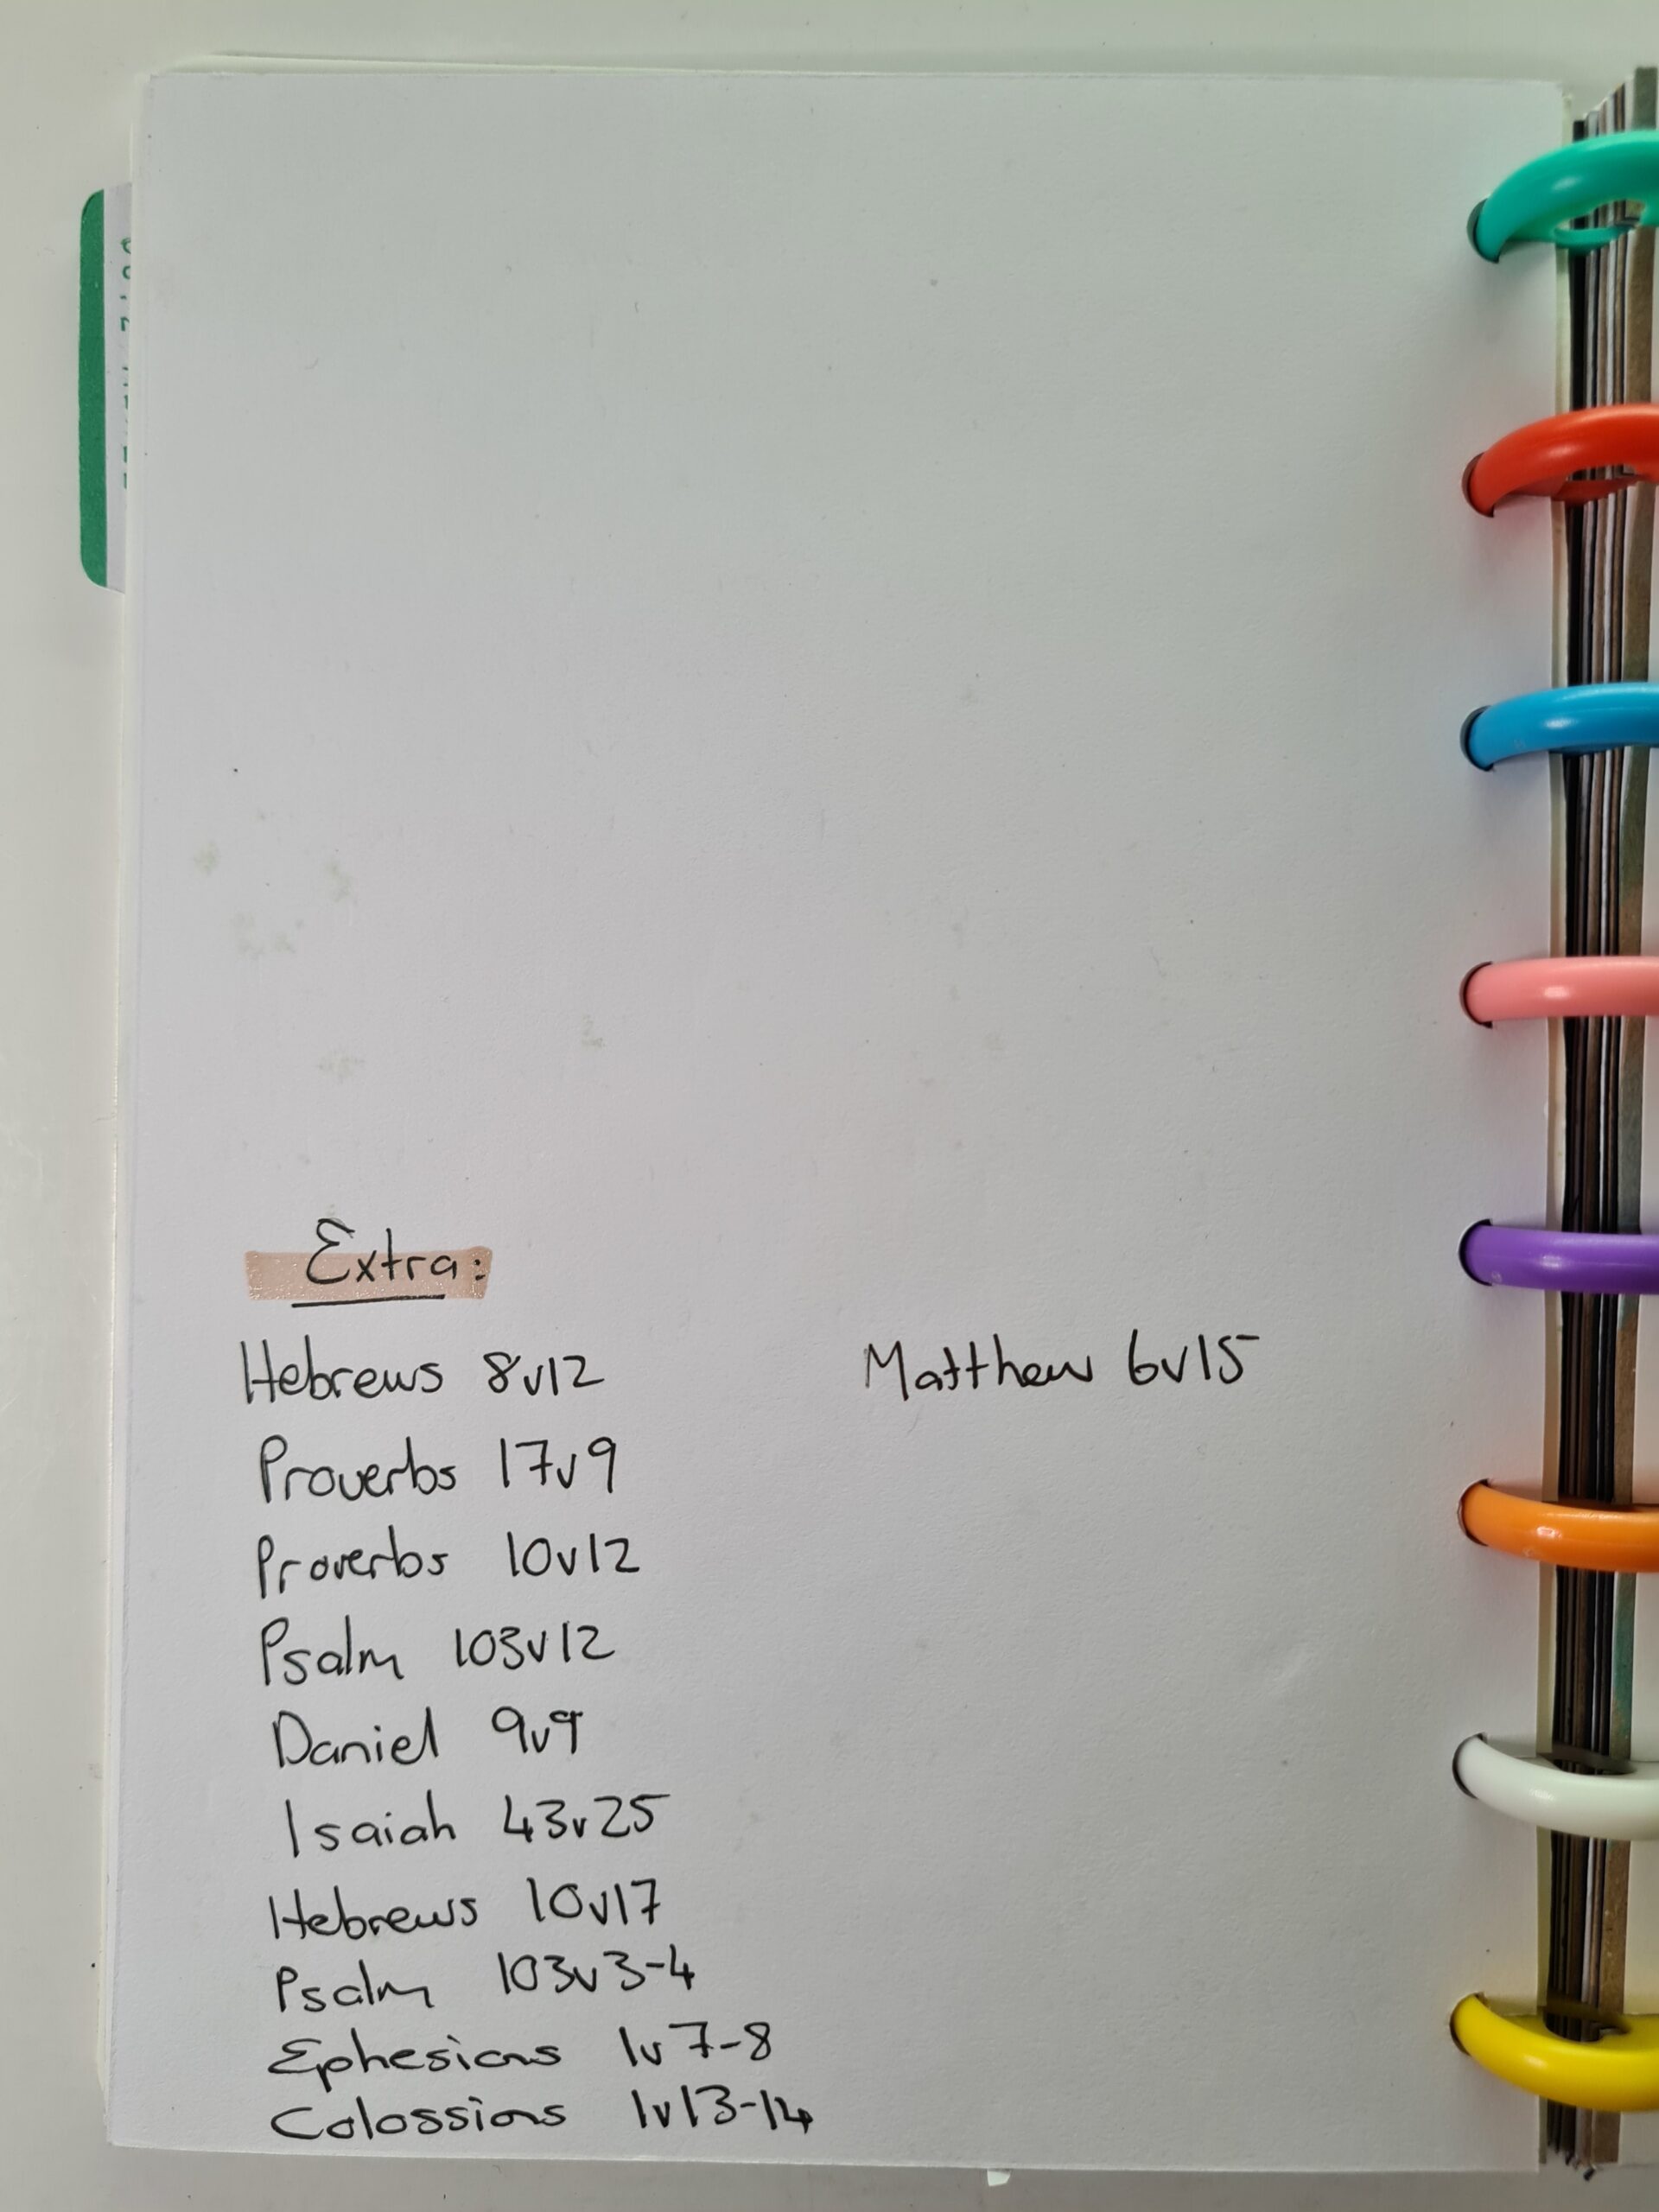 Extra:
Hebrews 8v12
Proverbs 17v9
Proverbs 10v12
Psalm 103v12
Daniel 9v9
Isaiah 43v25
Hebrews 10v17
Psalm 103v3-4
Ephesians 1v7-8
Colossians 1v13-14
Matthew 6v15